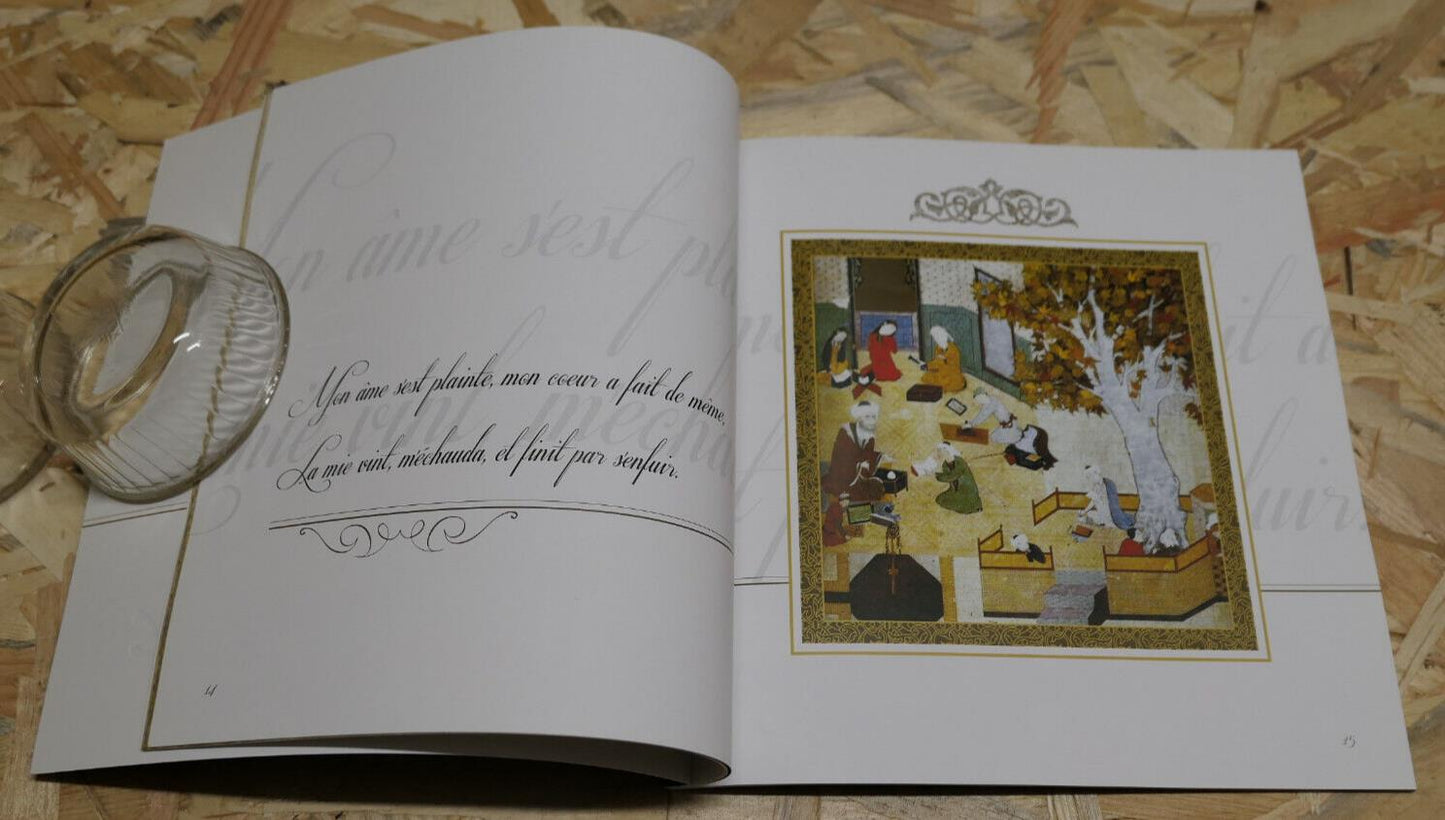 Mon âme s'est
vint,
Mon âme s'est plainte, mon coeur a fait de même.
La mie vint, m'échauda, et finit par s'enfuir.
14
15